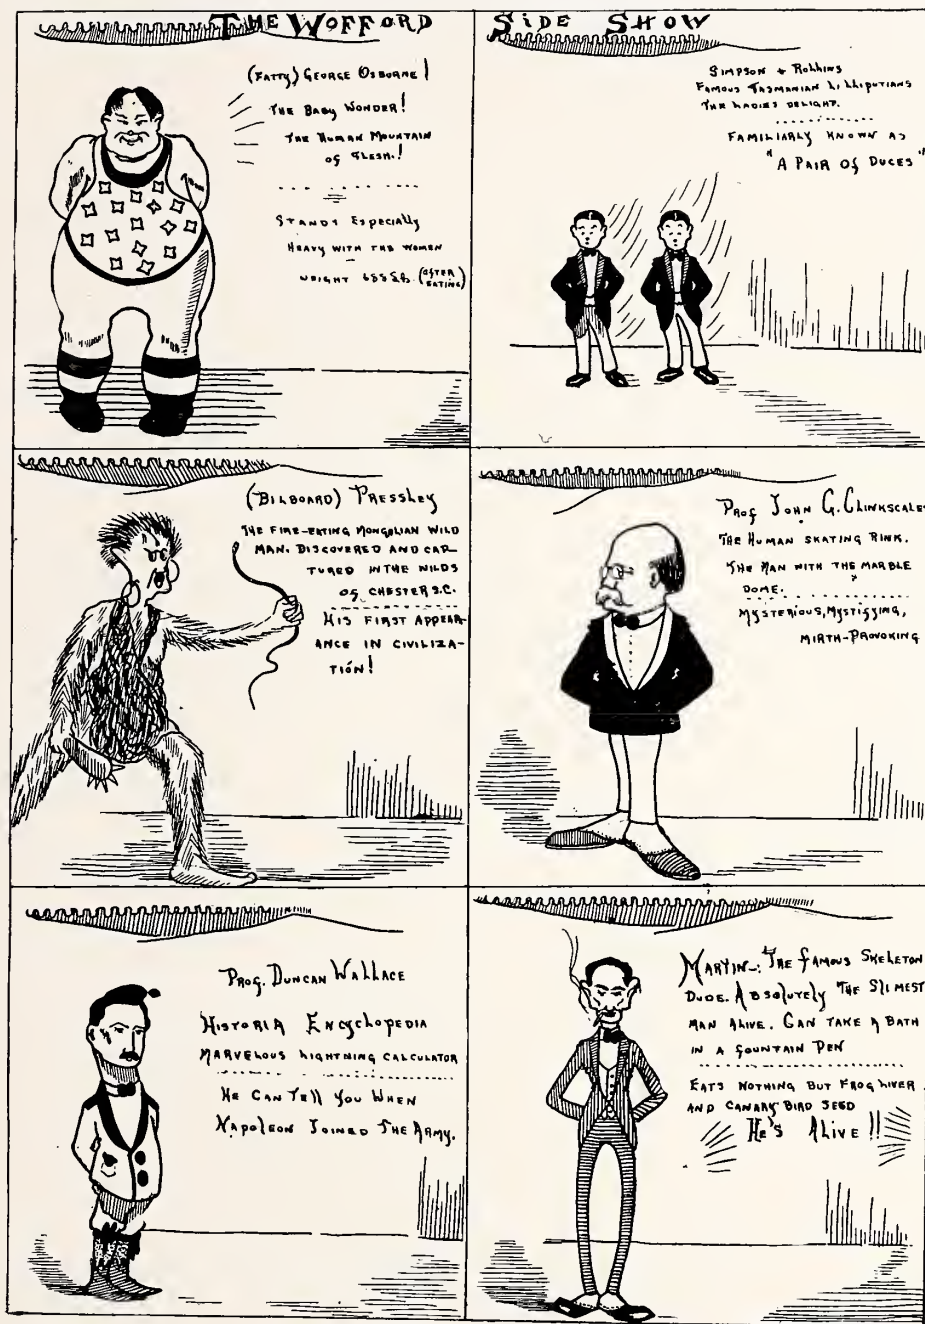 THE WOFFORD SIDE SHOW
(FATTY) GEORGE OSBURNE!
THE BABY WONDER!
THE HUMAN MOUNTAIN
OF FLESH.!
STANDS ESPECIALLY
HEAVY WITH THE WOMEN
WEIGHT (AFTER
EATING)
SIMPSON + ROBBINS
FAMOUS TASMANIAN LILLIPUTIANS
THE LADIES DELIGHT.
FAMILIARLY KNOWN AS
"A PAIR OF DUCES"
(BILBOARD) PRESSLEY
THE FIRE-EATING MONGOLIAN WILD
MAN. DISCOVERED AND CAP-
TURED IN THE WILDS
OF CHESTER S.C.
HIS FIRST APPEAR-
ANCE IN CIVILIZA-
TION!
PROF JOHN G. CLINKSCALES
THE HUMAN SKATING RINK.
THE MAN WITH THE MARBLE
DOME.
MYSTERIOUS, MYSTIFYING,
MIRTH-PROVOKING
PROF. DUNCAN WALLACE
HISTORIA ENCYCLOPEDIA
MARVELOUS LIGHTNING CALCULATOR
HE CAN TELL YOU WHEN
NAPOLEON JOINED THE ARMY.
MARTIN-: THE FAMOUS SKELETON
DUDE. ABSOLUTELY THE SLIMEST
MAN ALIVE. CAN TAKE A BATH
IN A FOUNTAIN PEN
EATS NOTHING BUT FROG LIVER
AND CANARY BIRD SEED
HE'S ALIVE!!